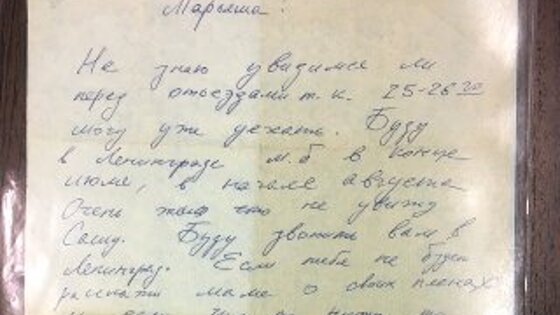 Марьяша!
Не знаю увидимся ли
перед отъездами т.к. 25-26 го
могу уже уехать. Буду
в Ленинграде м.б в конце
июля, в начале августа
Очень жаль что не увижу
Сашу. Буду звонить вам в
Ленинград. Если тебя не будет
расскажи маме о своих планах